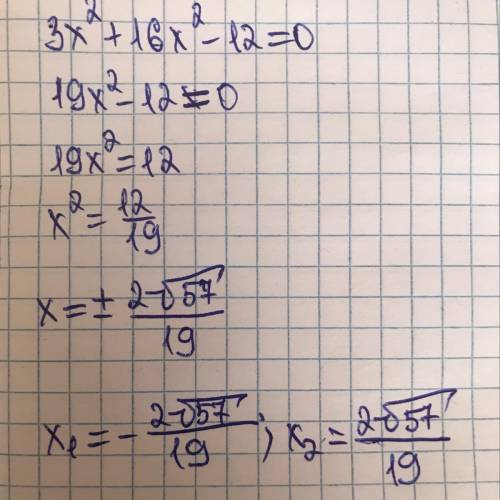 3x² + 16x² - 12 = 0
19x² - 12 = 0
19x² = 12
x² = 12/19
x = ± 2√57/19
x₁ = - 2√57/19 ; x₂ = 2√57/19